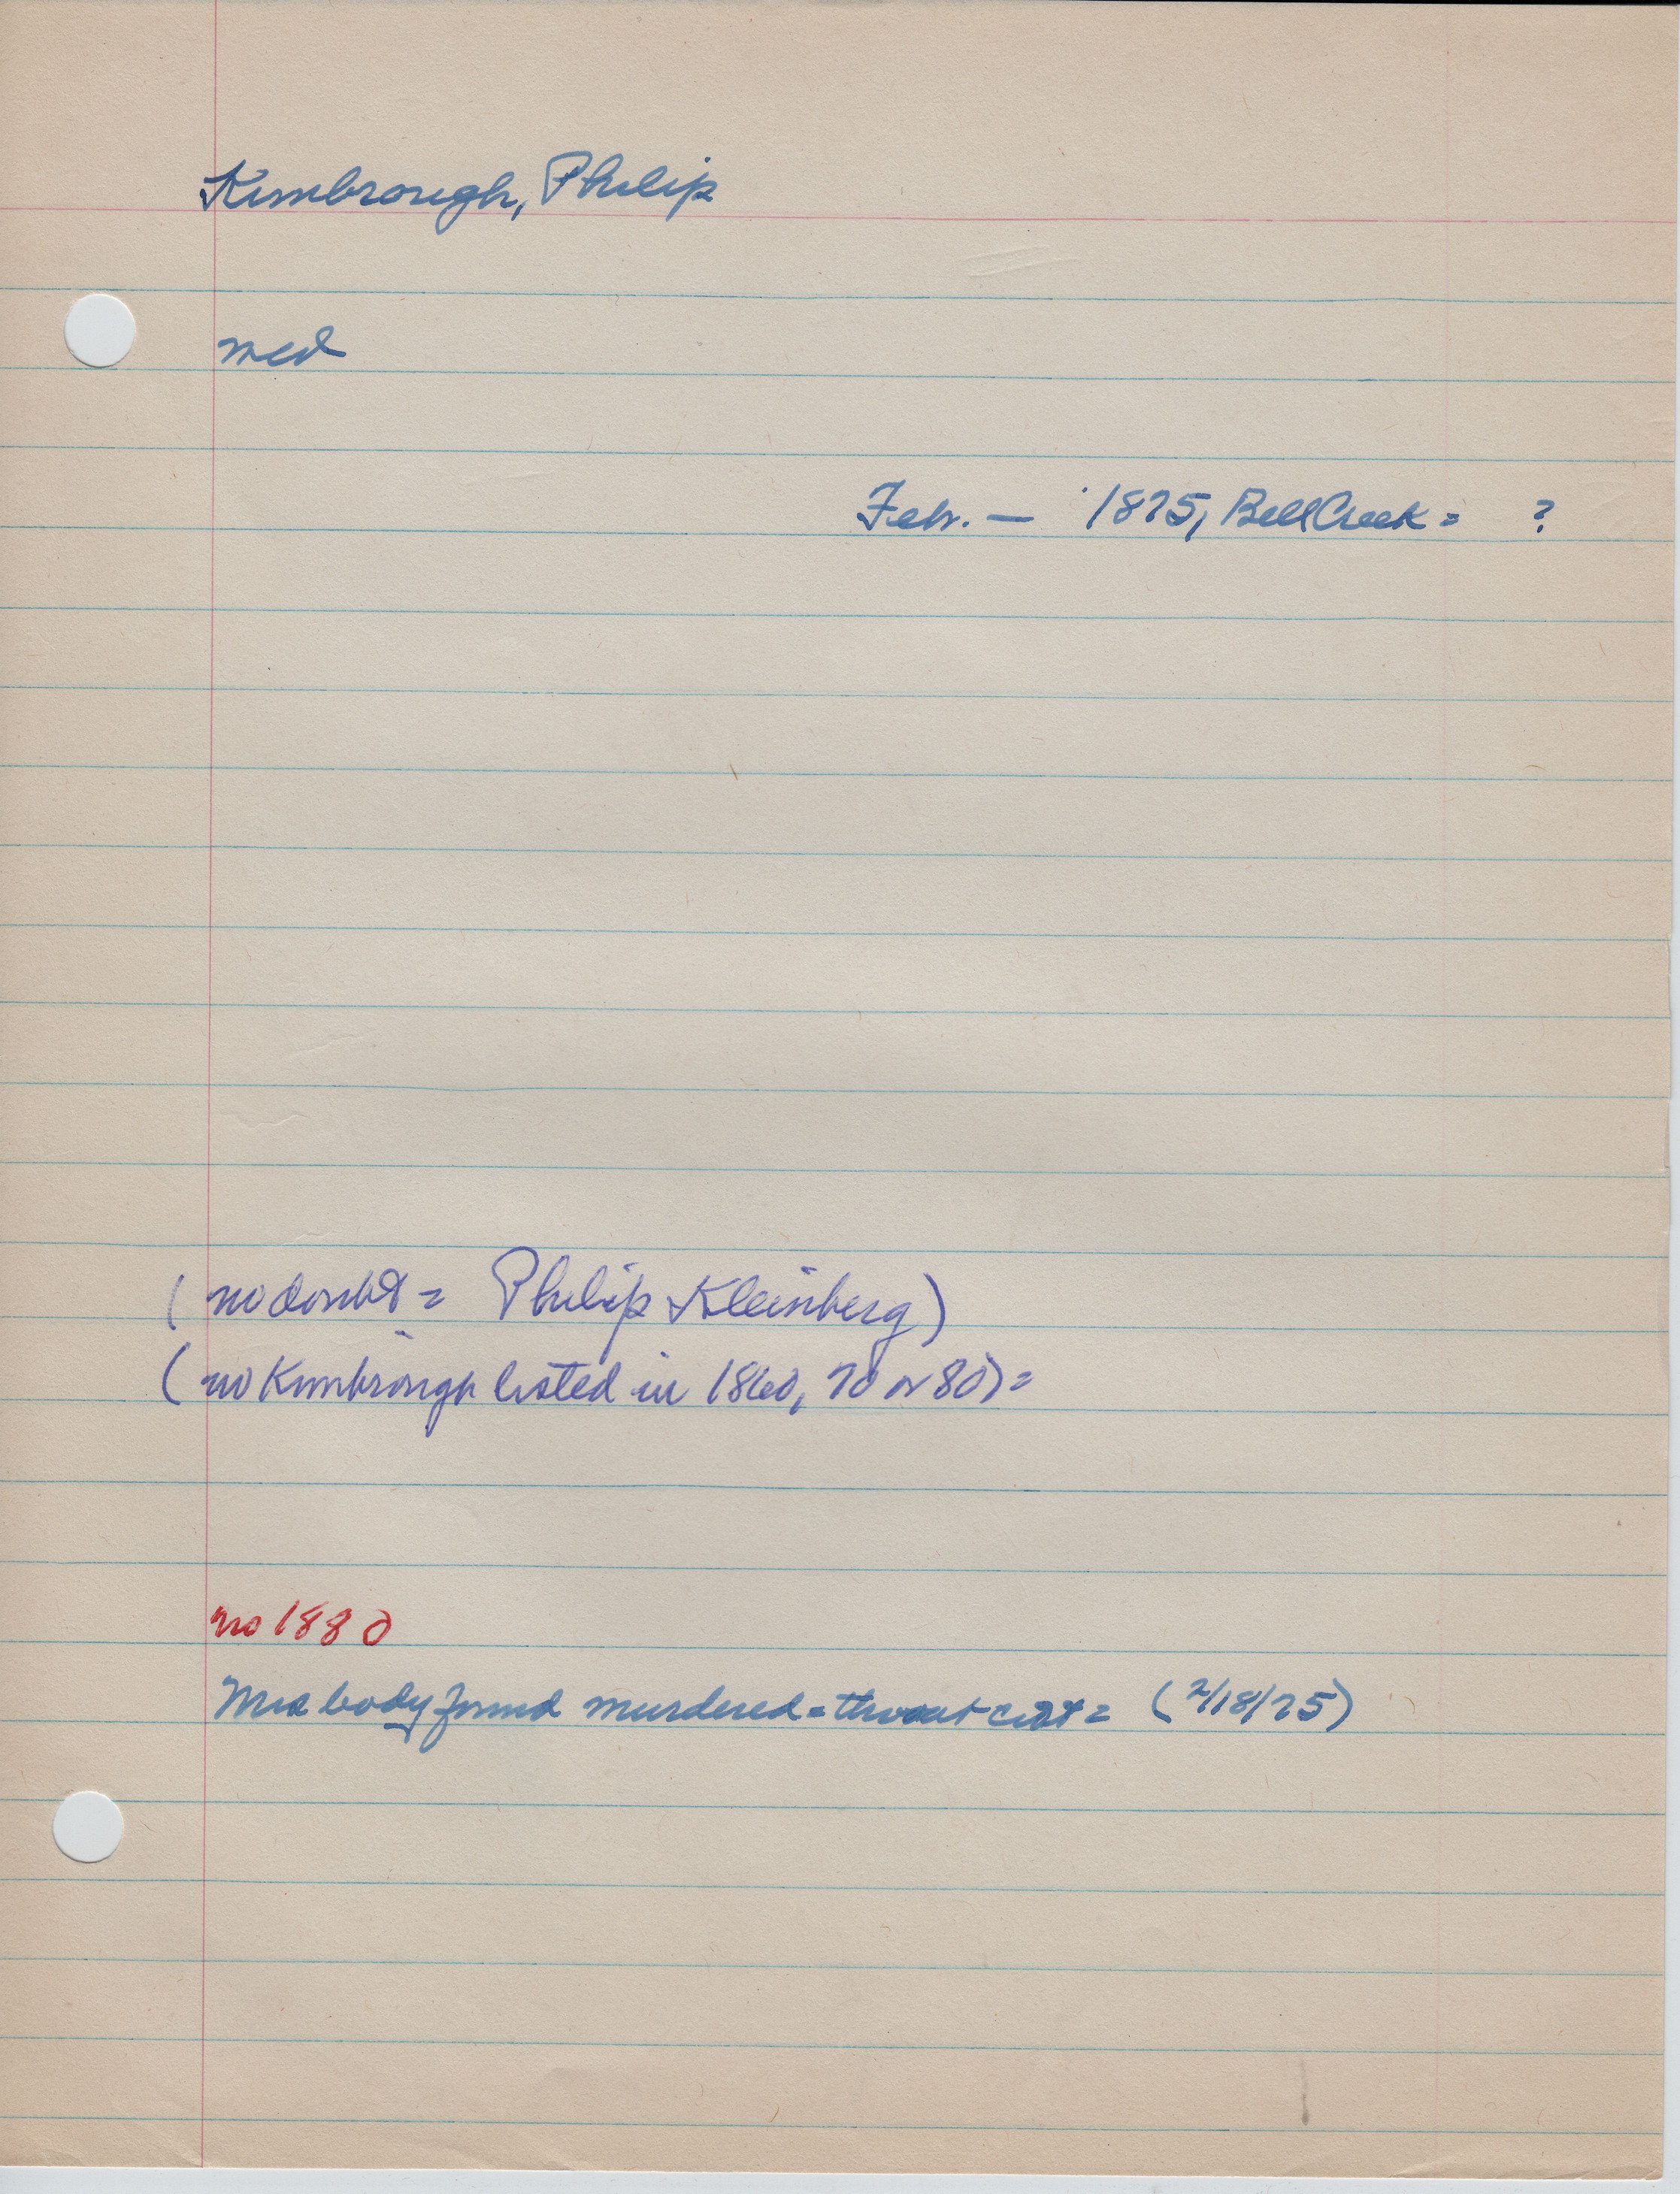 Kimbrough, Philip
med
Febr. — 1875, Bell Creek = ?
( no doubt = Philip Kleinberg )
( no Kimbrough listed in 1860, 70 or 80) =
no 1880
Med body found murdered = throat cut = (2/18/75)